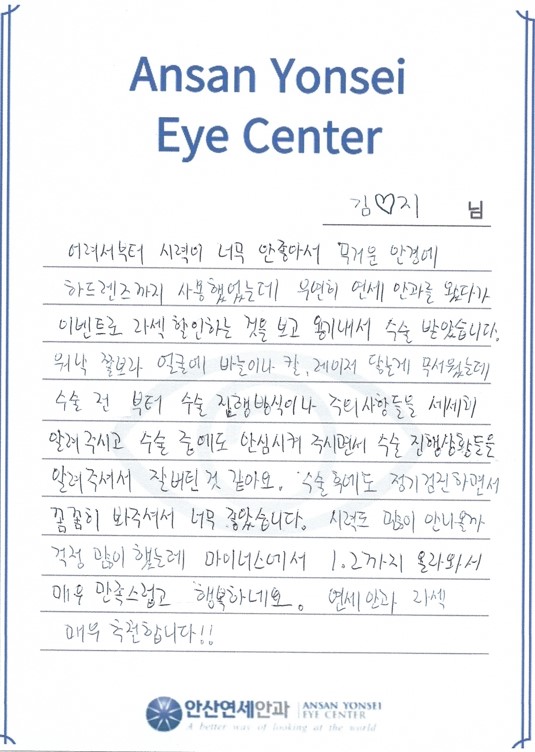 Ansan Yonsei
Eye Center
김♡지 님
어려서부터 시력이 너무 안좋아서 무거운 안경에
하드렌즈까지 사용했었는데 우연히 연세 안과를 왔다가
이벤트로 라섹 할인하는 것을 보고 용기내서 수술 받았습니다.
워낙 쫄보라 얼굴에 바늘이나 칼, 레이저 닿는게 무서웠는데
수술 전 부터 수술 진행방식이나 주의사항들을 세세히
알려주시고 수술 중에도 안심시켜 주시면서 수술 진행상황들을
알려주셔서 잘버틴 것 같아요. 수술 후에도 정기검진하면서
꼼꼼히 봐주셔서 너무 좋았습니다. 시력도 많이 안나올까
걱정 많이 했는데 마이너스에서 1.2까지 올라와서
매우 만족스럽고 행복하네요. 연세안과 라섹
매우 추천합니다!!
안산연세안과 ANSAN YONSEI
EYE CENTER
A better way of looking at the world